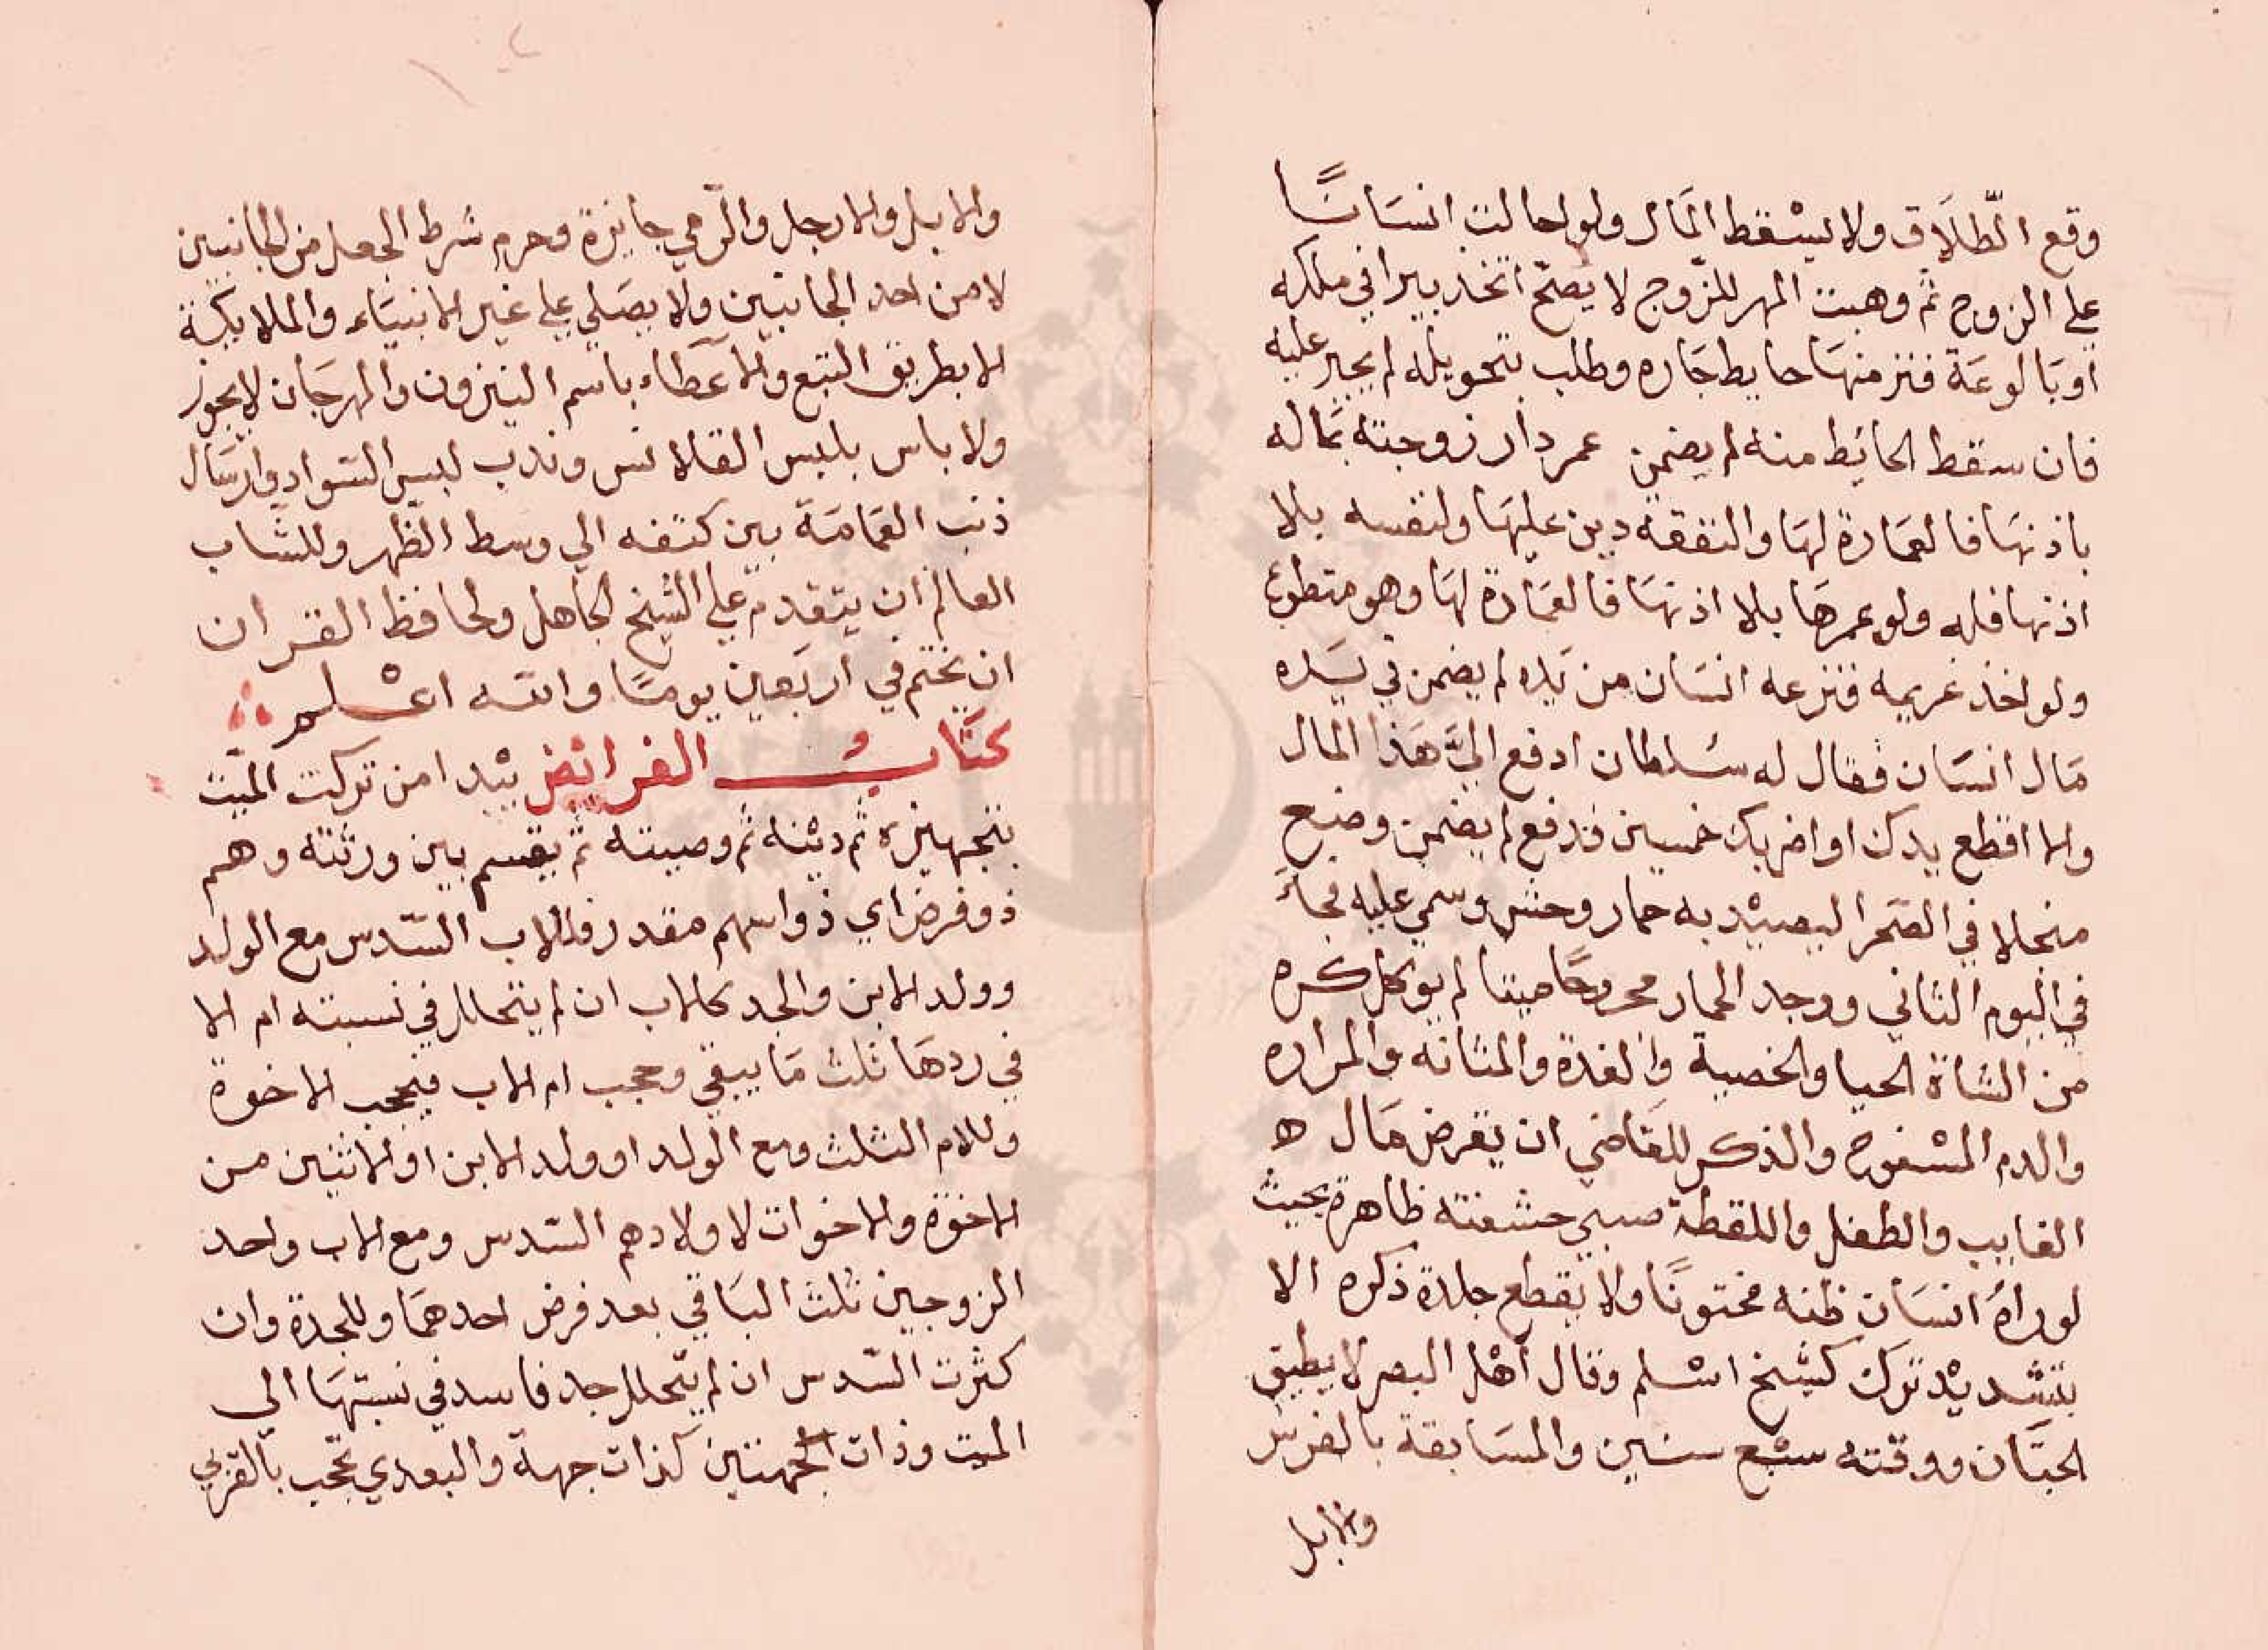 وقع الطلاق ولا يسقط المال ولو احالت انسانًا
علي الزوج ثم وهبت المهر للزوج لا يصح اتخذ بيرا في ملكه
او بالوعة فنز منها حايط جاره وطلب تحويله لم يجبر عليه
فان سقط الحائط منه لم يضمن عمر دار زوجته بماله
باذنها فالعمارة لها والنفقة دين عليها ولنفسه بلا
اذنها فله ولو عمرها بلا اذنها فالعمارة لها وهو متطوع
ولو اخذ غريمه فنزعه انسان من يده لم يضمن في يده
مال انسان فقال له سلطان ادفع اليّ هذا المال
والا اقطع يدك او اضربك خمسين فدفع لم يضمن وضع
منجلا في الصحرا ليصيد به حمار وحش وسمي عليه فجاء
في اليوم الثاني ووجد الحمار مجروحًا ميتا لم يوكل كره
من الشاة الحيا والخصية والغدة والمثانه والمراره
والدم المسفوح والذكر للقاضي ان يقرض مال ه
الغايب والطفل واللقطة صبي حشفته ظاهرة بحيث
لو راه انسان ظنه مختونًا ولا يقطع جلدة ذكره الا
بتشديد ترك كشيخ اسلم وقال اهل البصر لا يطيق
الختان ووقته سبع سنين والمسابقة بالفرس
والابل
والابل والارجل والرمي جايزة وحرم شرط الجعل من الجانبين
لا من احد الجانبين ولا يصلي علي غير الانبياء والملايكة
الا بطريق التبع والاعطاء باسم النيزون والمهرجان لا يجوز
ولا باس بلبس القلانس وندب لبس السواد وارسال
ذنب العمامة بين كتفه الي وسط الظهر وللشاب
العالم ان يتقدم علي الشيخ الجاهل ولحافظ القران
ان يختم في اربعين يومًا والله اعلم
كتاب الفرائض يبدا من تركت الميت
بتجهيزه ثم دينه ثم وصيته ثم يقسم بين ورثته وهم
ذو فرض اي ذوا سهم مقدر فللاب السدس مع الولد
وولد الابن والجد كالاب ان لم يتخلل في نسبته ام الا
في ردها ثلث ما يبقي وحجب ام الاب فيحجب الاخوة
وللام الثلث ومع الولد او ولد الابن او الاثنين من
الاخوة والاخوات لا اولادهم السدس ومع الاب واحد
الزوجين ثلث الباقي بعد فرض احدهما وللجدة وان
كثرت السدس ان لم يتخلل جد فاسد في نسبتها الي
الميت وذات الجهتين كذات جهة والبعدي تحجب بالقربي